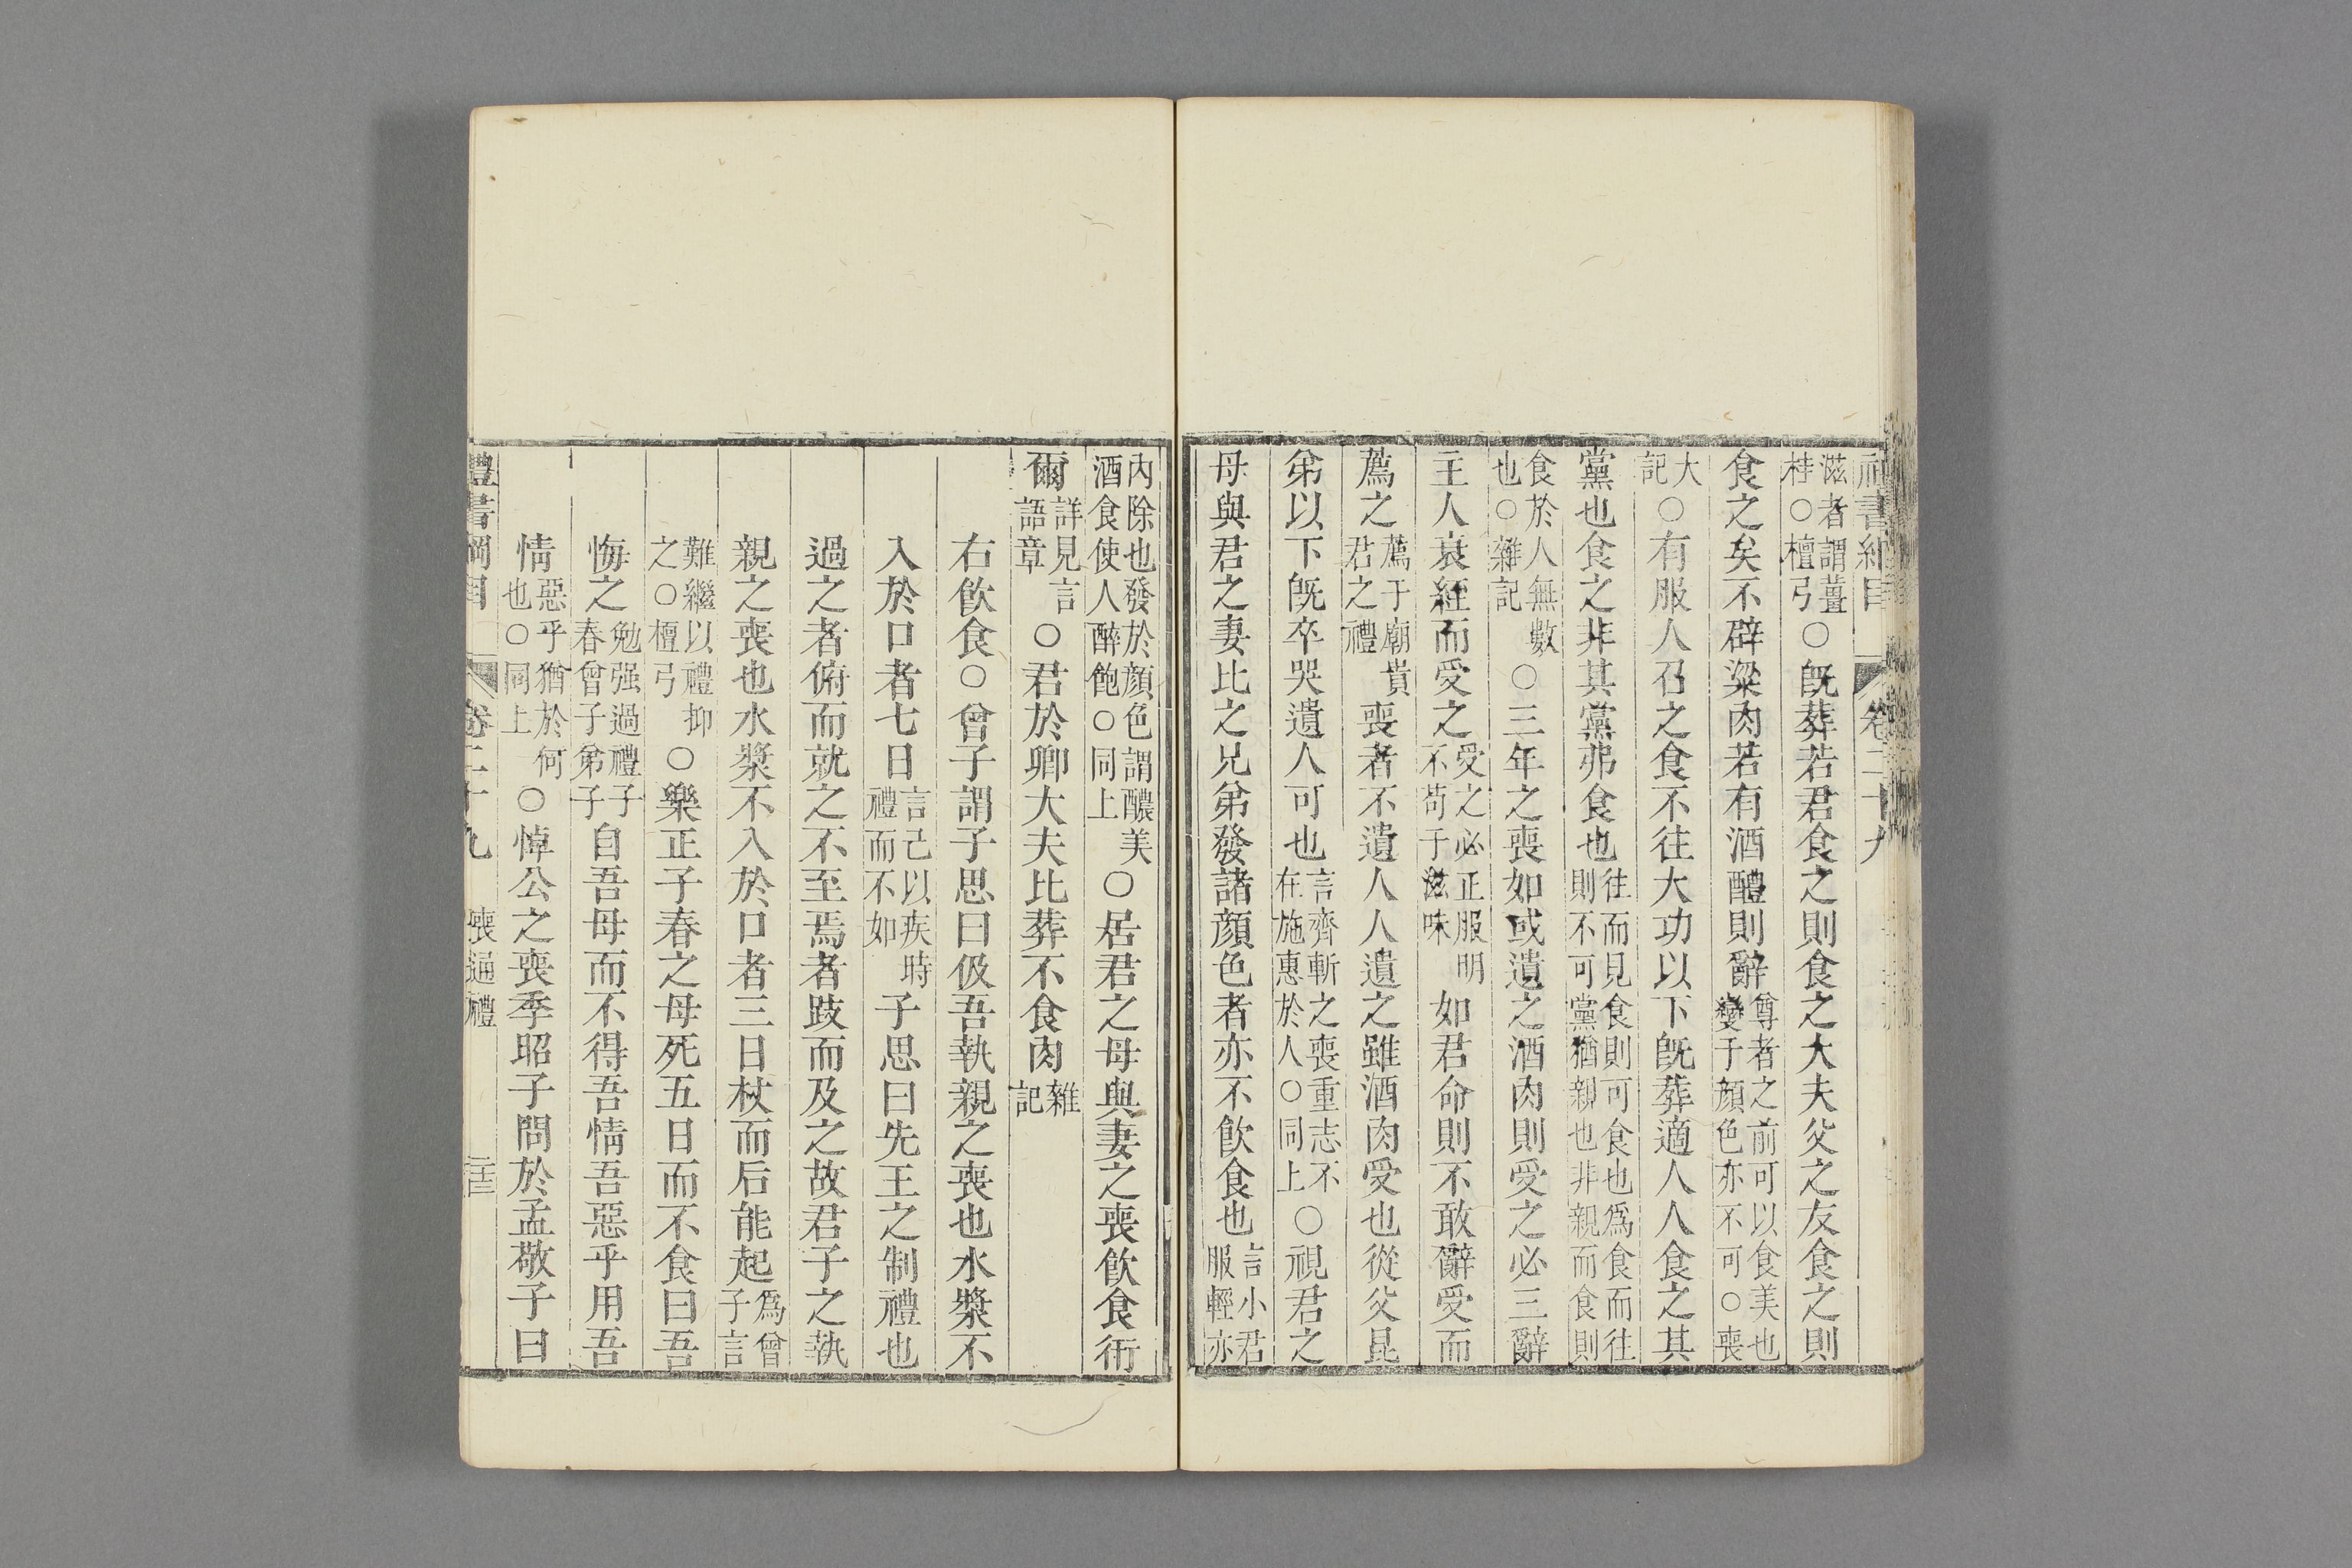 滋者謂薑桂○檀弓○旣葬若君食之則食之大夫父之友食之則
食之矣不辟粱肉若有酒醴則辭尊者之前可以食美也變于顔色亦不可○喪
大記○有服人召之食不往大功以下旣葬適人人食之其
黨也食之非其黨弗食也往而見食則可食也爲食而往則不可黨猶親也非親而食則
食於人無數也○雜記○三年之喪如或遺之酒肉則受之必三辭
主人衰絰而受之受之必正服明不苟于滋味如君命則不敢辭受而
薦之薦于廟貴君之禮喪者不遺人人遺之雖酒肉受也從父昆
弟以下旣卒哭遺人可也言齊斬之喪重志不在施惠於人○同上○視君之
母與君之妻比之兄弟發諸顔色者亦不飮食也言小君服輕亦
內除也發於顔色謂醲美酒食使人醉飽○同上○居君之母與妻之喪飮食衎
爾詳見言語章○君於卿大夫比葬不食肉雜記
右飮食○曾子謂子思曰伋吾執親之喪也水漿不
入於口者七日言己以疾時禮而不如子思曰先王之制禮也
過之者俯而就之不至焉者跂而及之故君子之執
親之喪也水漿不入於口者三日杖而后能起爲曾子言
難繼以禮抑之○檀弓○樂正子春之母死五日而不食曰吾
悔之勉强過禮子春曾子弟子自吾母而不得吾情吾惡乎用吾
情惡乎猶於何也○同上○悼公之喪季昭子問於孟敬子曰
禮書綱目 卷二十九 喪通禮 二十三